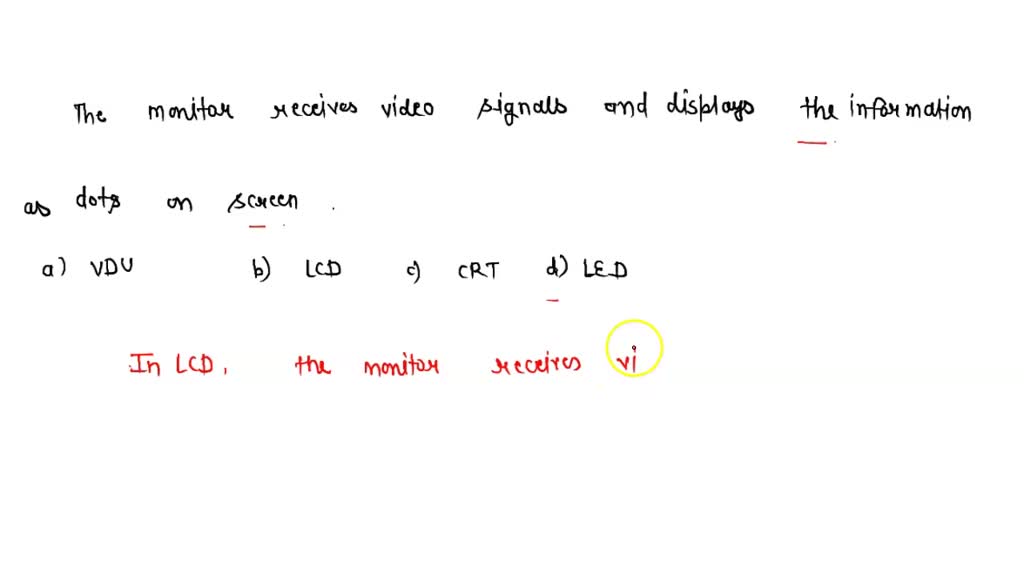 The monitor receives video signals and displays the information
as dots on screen.
a) VDU b) LCD c) CRT d) LED
In LCD, the monitor receives vi